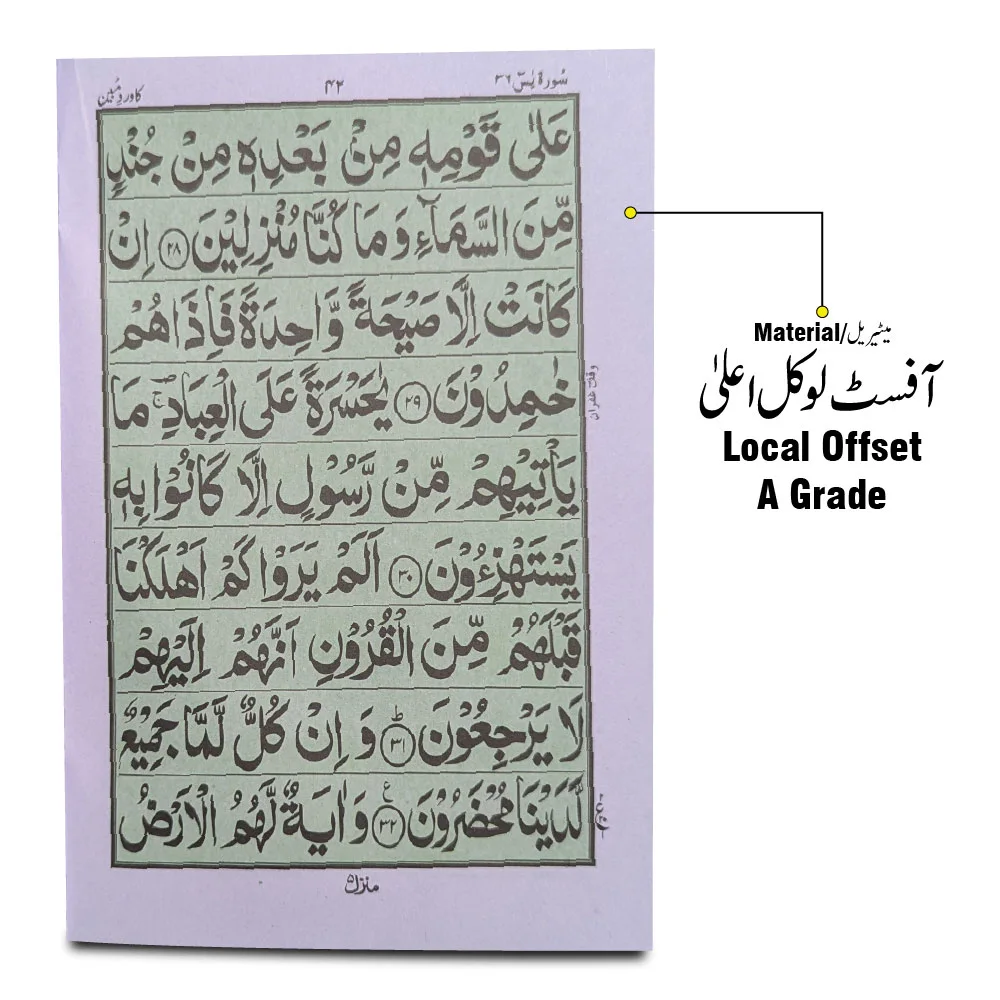 سُورۃ یٰسٓ ۳۶
۴۲
عَلٰى قَوْمِهٖ مِنْۢ بَعْدِهٖ مِنْ جُنْدٍ
مِّنَ السَّمَآءِ وَ مَا كُنَّا مُنْزِلِیْنَ ۲۸ اِنْ
كَانَتْ اِلَّا صَیْحَةً وَّاحِدَةً فَاِذَا هُمْ
خٰمِدُوْنَ ۲۹ یٰحَسْرَةً عَلَى الْعِبَادِ ۚ مَا
یَاْتِیْهِمْ مِّنْ رَّسُوْلٍ اِلَّا كَانُوْا بِهٖ
یَسْتَهْزِءُوْنَ ۳۰ اَلَمْ یَرَوْا كَمْ اَهْلَكْنَا
قَبْلَهُمْ مِّنَ الْقُرُوْنِ اَنَّهُمْ اِلَیْهِمْ
لَا یَرْجِعُوْنَ ؕ ۳۱ وَ اِنْ كُلٌّ لَّمَّا جَمِیْعٌ
لَّدَیْنَا مُحْضَرُوْنَ ۳۲ ع وَ اٰیَةٌ لَّهُمُ الْاَرْضُ
منزل ۵
Material/میٹیریل
آفسٹ لوکل اعلیٰ
Local Offset
A Grade